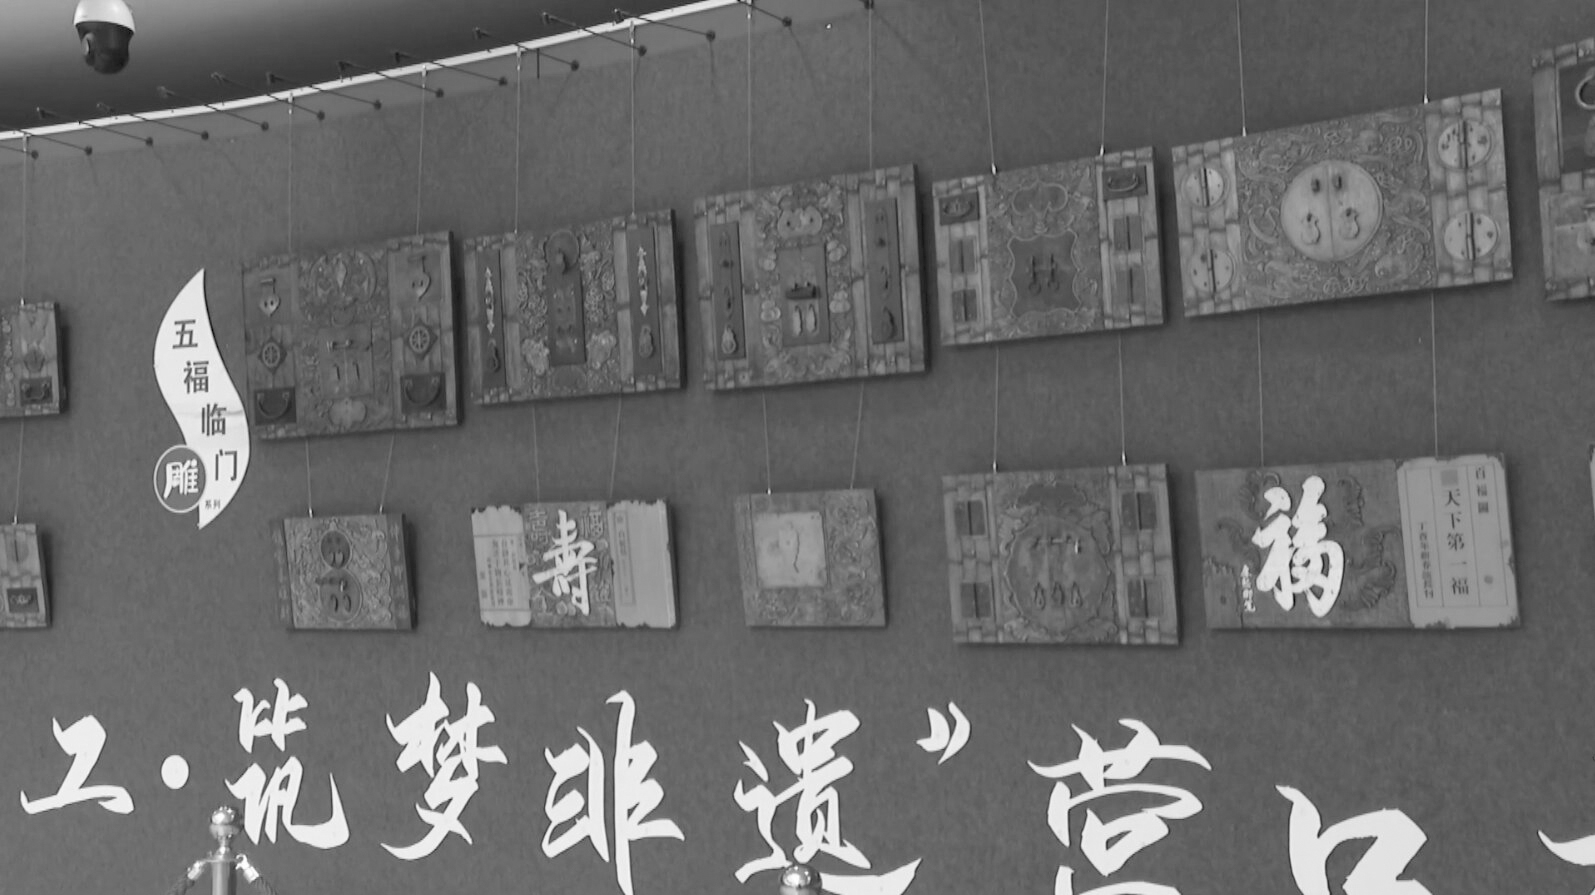 五福临门
雕
系列
寿
福
百福圖
天下第一福
工·筑梦非遗”营口